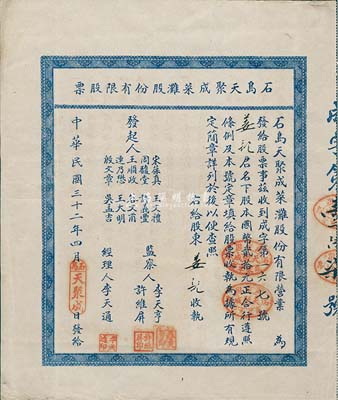 石島天聚成菜灘股份有限股票
石島天聚成菜灘股份有限營業 為
發給股票事茲收到成字第 六七 號
益記君名下股本國幣貳拾元正合行遵照
條例及本號定章填給股票收執為據所有規
定簡章詳列於後以便查照
給股東 益記 收執
發起人
宋葆真
周駿堂
王順政
連乃懋
殷文章
王大明
吳孟吉
監察人 李天亨 許維屏
經理人 李天通
中華民國三十二年四月 日發給
天聚成
字第 號